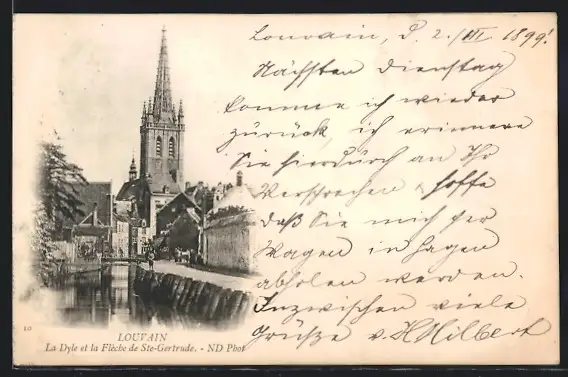 Louvain, d. 2./III 1899!
Nächsten Dienstag
komme ich wieder
zurück, ich erinnere
Sie hierdurch an Ihr
Versprechen & hoffe
daß Sie mich per
Wagen in Hagen
abholen werden.
Inzwischen viele
Grüße v. H Hilbert
10
LOUVAIN
La Dyle et la Flèche de Ste-Gertrude. - ND Phot